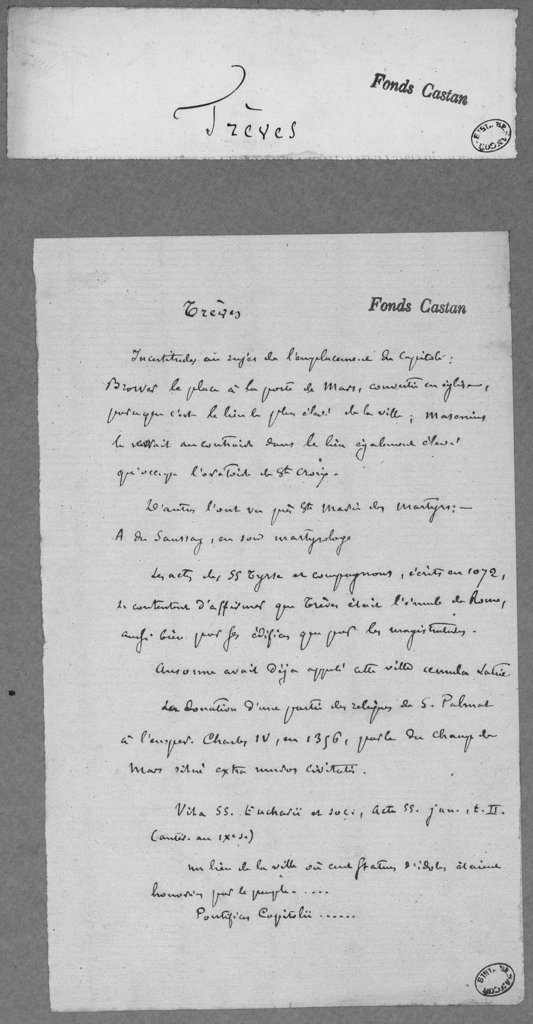 Trèves
Fonds Castan
Trèves
Fonds Castan
Incertitudes au sujet de l'emplacement du Capitole :
Brower le place à la porte de Mars, convertie en église,
parce que c'est le lieu le plus élevé de la ville ; Masenius
le au contraire dans le lieu également élevé
qu'occupe l'oratoire de Ste Croix.
D'autres l'ont vu près Ste Marie des Martyrs : —
A du Saussay, en son martyrologe
Les actes des SS Tyrse et compagnons, écrits en 1072,
se contentent d'affirmer que Trèves était l'émule de Rome,
aussi bien par ses édifices que par les magistratures.
Ausonne avait déja appelé cette ville
La Donation d'une partie des reliques de S. Palmat
à l'emper. Charles IV, en 1356, parle du champ de
Mars situé extra muros civitatis.
Vita SS. Eucharii et soci, Acta SS. jan., t. II.
(antér. au IXe s.)
un lieu de la ville où cent statues d'idoles étaient
honorées par le peuple.....
Pontifices Capitolii ......